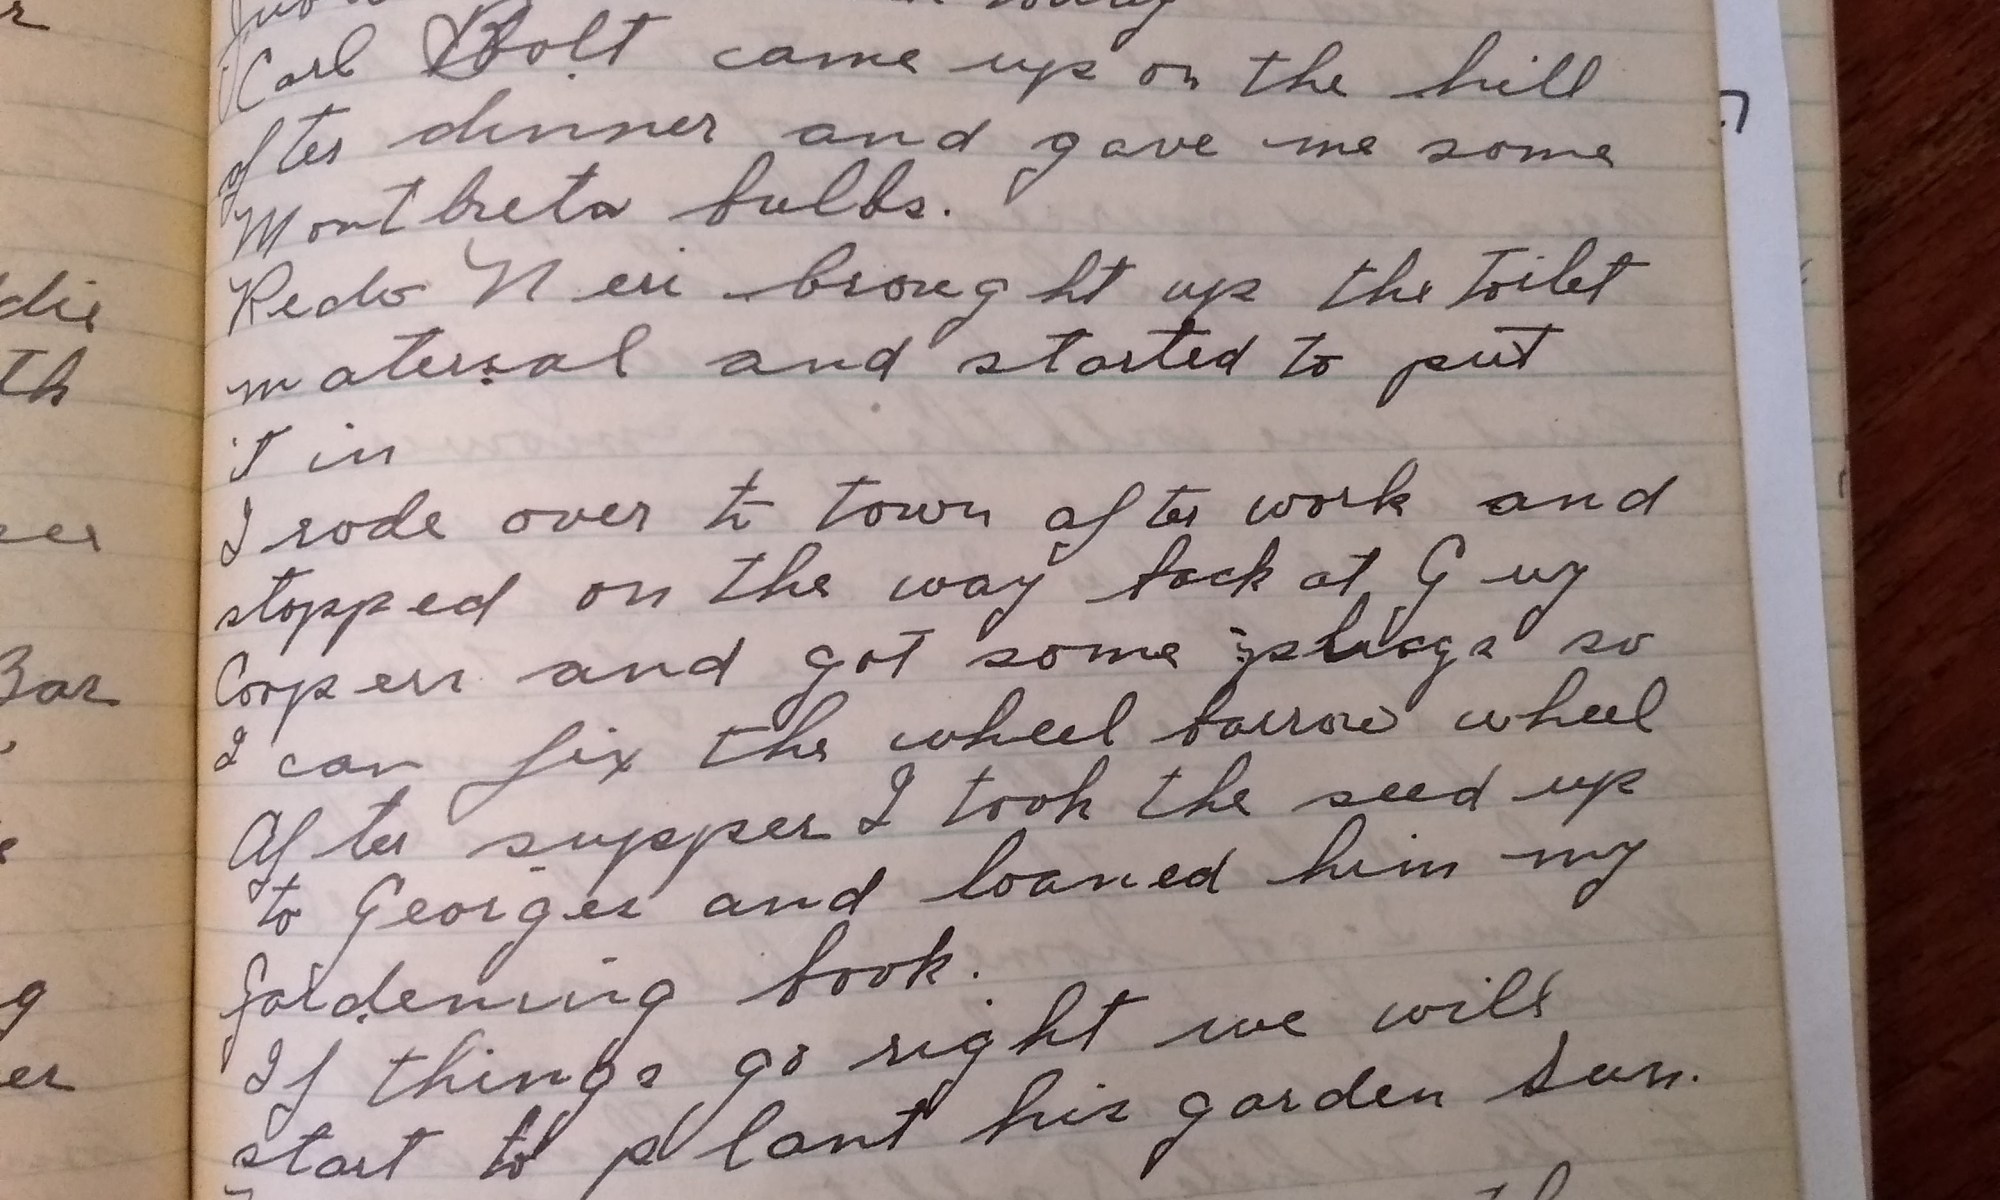 today
Carl Bolt came up on the hill
after dinner and gave me some
Montbreta bulbs.
Redo Neri brought up the toilet
material and started to put
it in
I rode over to town after work and
stopped on the way back at Guy
Coopers and got some plugs so
I can fix the wheel barrow wheel
After supper I took the seed up
to Georges and loaned him my
gardening book.
If things go right we will
start to plant his garden Sun.
die
th
Bar
g
er